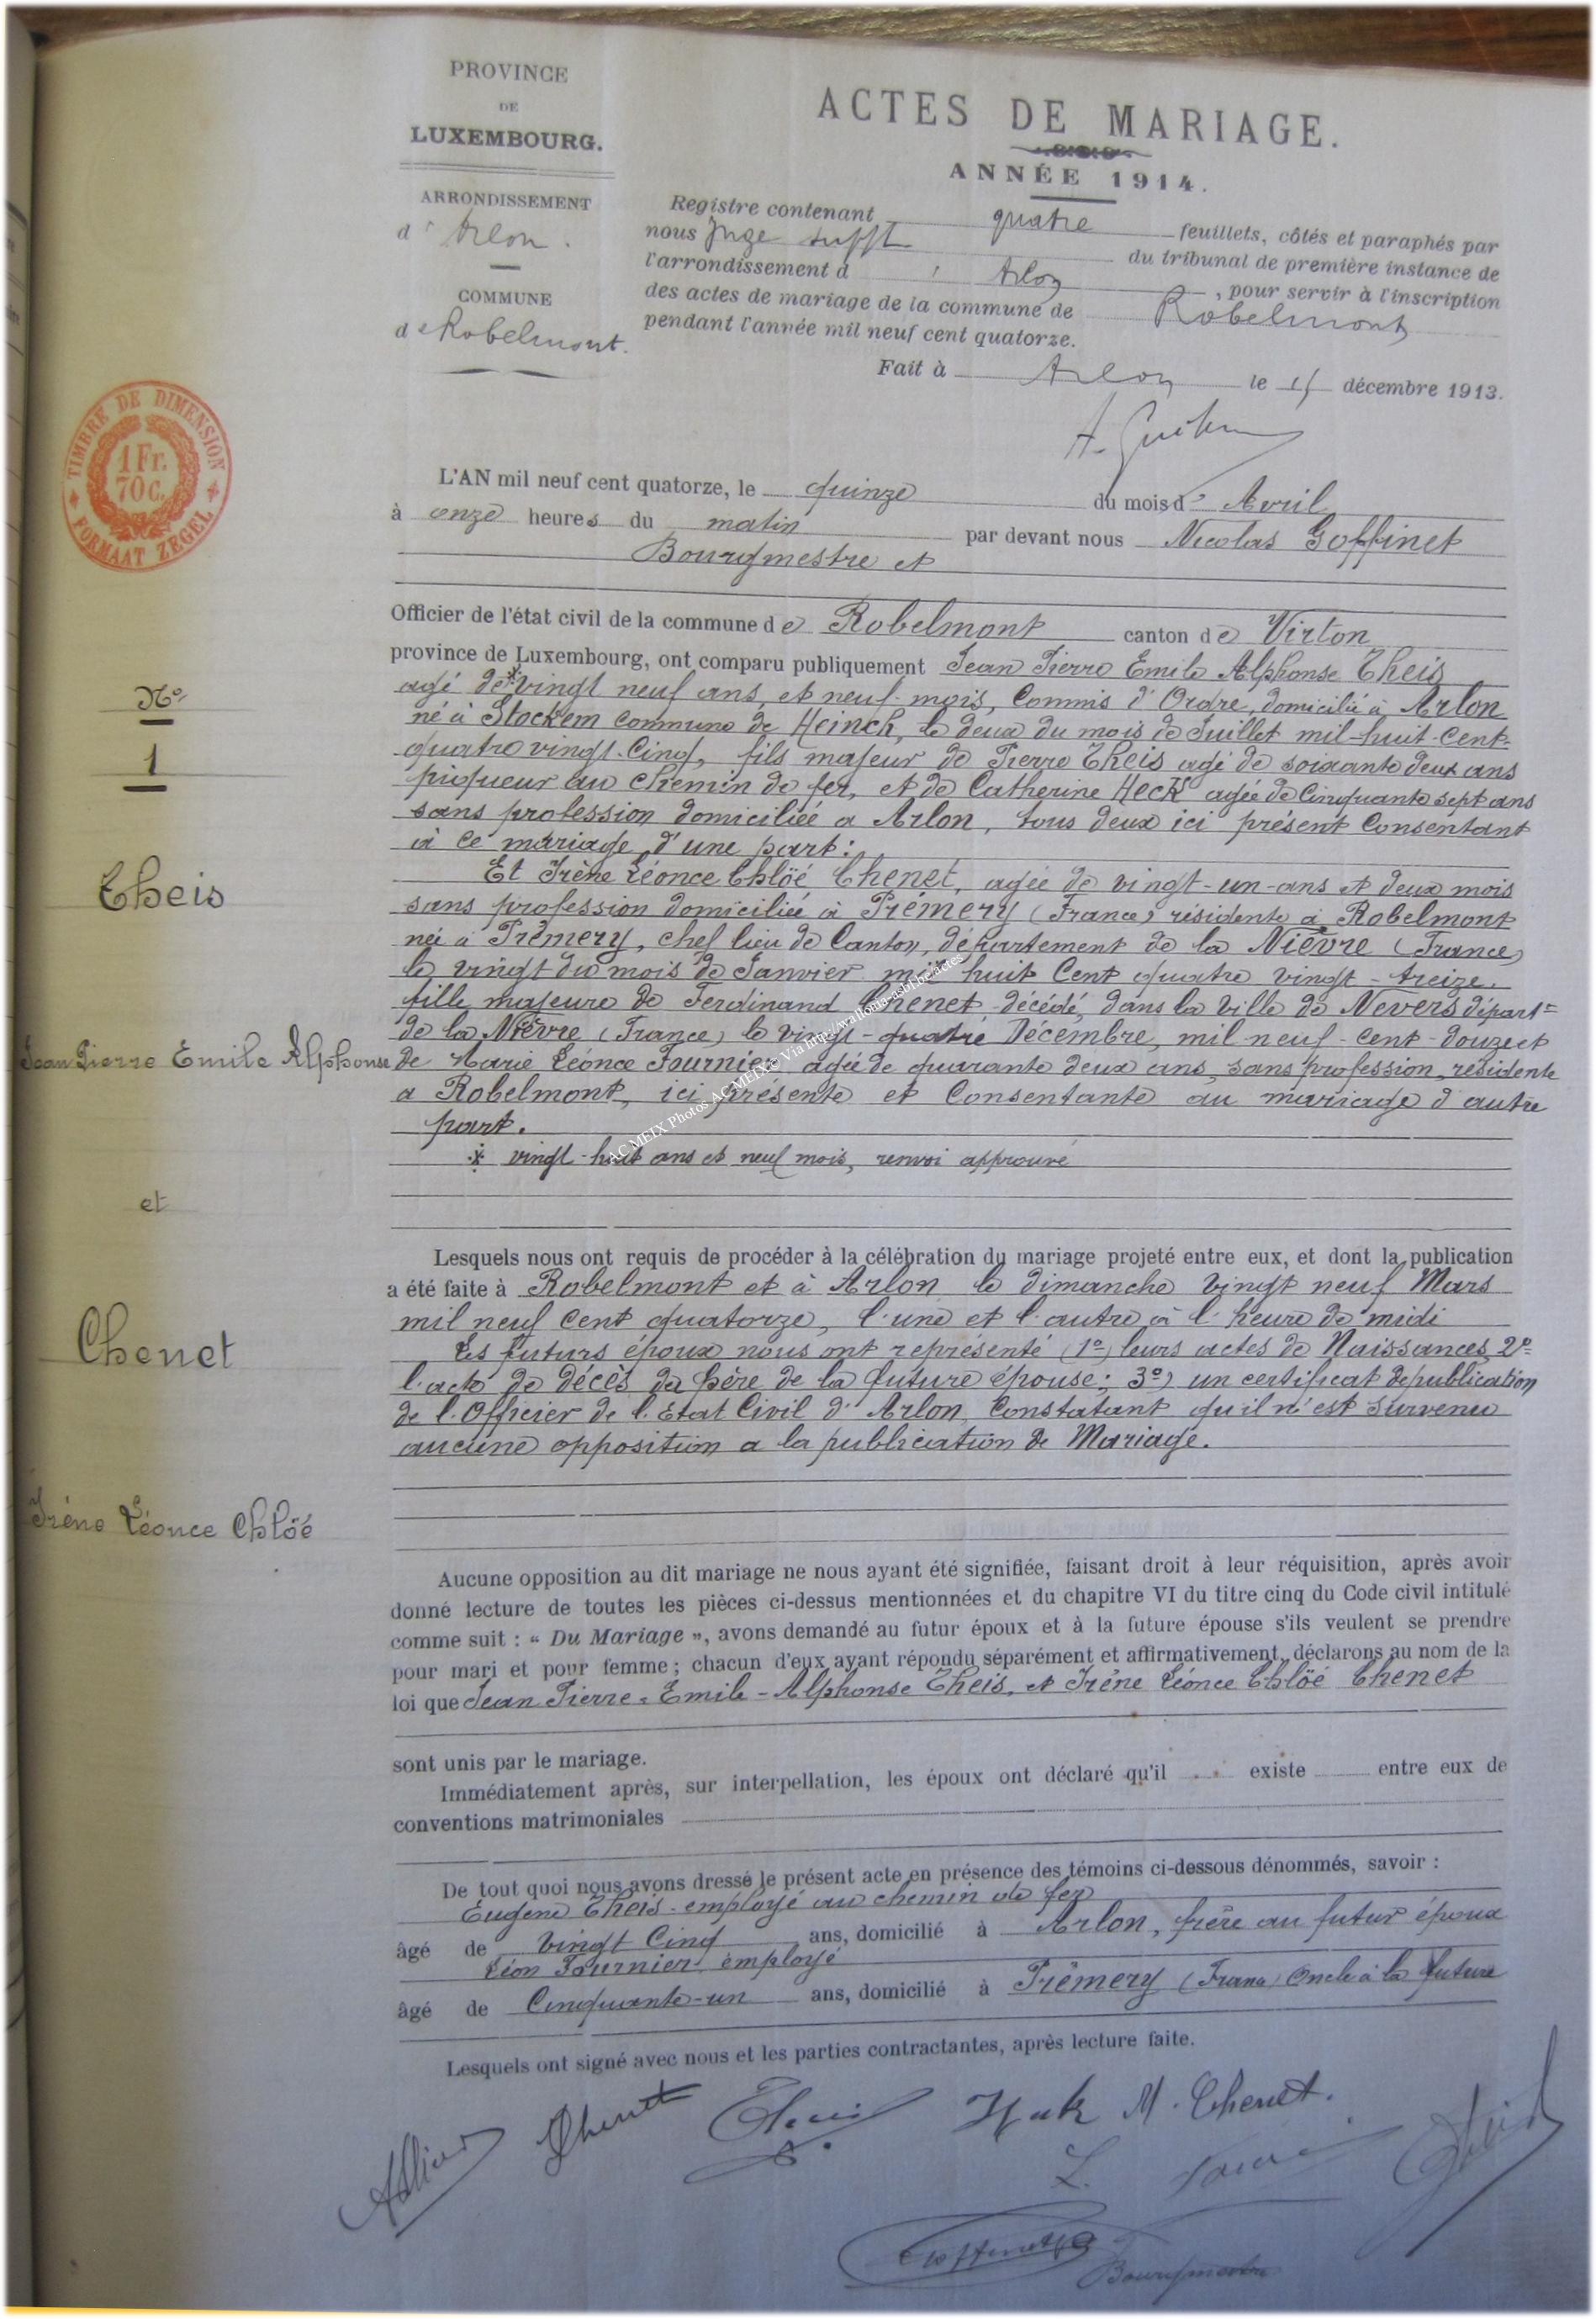 PROVINCE
DE
LUXEMBOURG.
ARRONDISSEMENT
d' Arlon.
COMMUNE
de Robelmont.
ACTES DE MARIAGE.
ANNÉE 1914.
Registre contenant quatre feuillets, côtés et paraphés par
nous Juge suppt du tribunal de première instance de
l'arrondissement d' Arlon, pour servir à l'inscription
des actes de mariage de la commune de Robelmont
pendant l'année mil neuf cent quatorze.
Fait à Arlon le 15 décembre 1913.
TIMBRE DE DIMENSION
1 Fr.
70 C.
FORMAAT ZEGEL
L'AN mil neuf cent quatorze, le quinze du mois d' Avril
à onze heures du matin par devant nous Nicolas Goffinet
Bourgmestre et
Officier de l'état civil de la commune de Robelmont canton de Virton
province de Luxembourg, ont comparu publiquement Jean Pierre Emile Alphonse Theis
agé de * vingt neuf ans et neuf mois, Commis d'Ordre, domicilié à Arlon
né à Stockem commune de Heinch, le deux du mois de Juillet mil-huit-cent-
quatre vingt-Cinq, fils majeur de Pierre Theis agé de soixante deux ans
piqueur au chemin de fer, et de Catherine Heck agée de Cinquante sept ans
sans profession domiciliée a Arlon, tous deux ici présent Consentant
à ce mariage d'une part:
Et Irène Léonce Chlöé Chenet, agée de vingt-un-ans et deux mois
sans profession domiciliée à Prémery (France) résidente à Robelmont
née à Prémery, chef lieu de Canton, département de la Nièvre (France)
le vingt du mois de Janvier mil huit Cent quatre vingt-treize.
fille majeure de Ferdinand Chenet décédé, dans la ville de Nevers départt
de la Nièvre (France) le vingt-quatre Décembre, mil-neuf-cent-douze et
de Marie Léonce Fournier agée de quarante deux ans, sans profession, résidente
a Robelmont, ici présente et Consentante au mariage d'autre
part.
* vingt-huit ans et neuf mois, renvoi approuvé
No
1
Theis
Jean Pierre Emile Alphonse
et
Chenet
Irène Léonce Chlöé
AC MEIX Photos ACMEIX© Via http://wallonia-asbl.be/actes
Lesquels nous ont requis de procéder à la célébration du mariage projeté entre eux, et dont la publication
a été faite à Robelmont et à Arlon le dimanche vingt neuf Mars
mil neuf Cent quatorze, l'une et l'autre à l'heure de midi
Les futurs époux nous ont représenté (1o) leurs actes de Naissances, 2o
l'acte de décès du père de la future épouse; 3o) un certificat de publication
de l'Officier de l'Etat Civil d'Arlon, Constatant qu'il n'est survenu
aucune opposition a la publication de Mariage.
Aucune opposition au dit mariage ne nous ayant été signifiée, faisant droit à leur réquisition, après avoir
donné lecture de toutes les pièces ci-dessus mentionnées et du chapitre VI du titre cinq du Code civil intitulé
comme suit : « Du Mariage », avons demandé au futur époux et à la future épouse s'ils veulent se prendre
pour mari et pour femme; chacun d'eux ayant répondu séparément et affirmativement, déclarons au nom de la
loi que Jean Pierre-Emile-Alphonse Theis, et Irène Léonce Chlöé Chenet
sont unis par le mariage.
Immédiatement après, sur interpellation, les époux ont déclaré qu'il existe entre eux de
conventions matrimoniales
De tout quoi nous avons dressé le présent acte en présence des témoins ci-dessous dénommés, savoir :
Eugène Theis employé au chemin de fer
âgé de Vingt Cinq ans, domicilié à Arlon, frère au futur époux
Léon Fournier employé
âgé de Cinquante-un ans, domicilié à Prémery (France) Oncle à la future
Lesquels ont signé avec nous et les parties contractantes, après lecture faite.
Chenet Theis Heck M. Chenet.
Goffinet
Bourgmestre